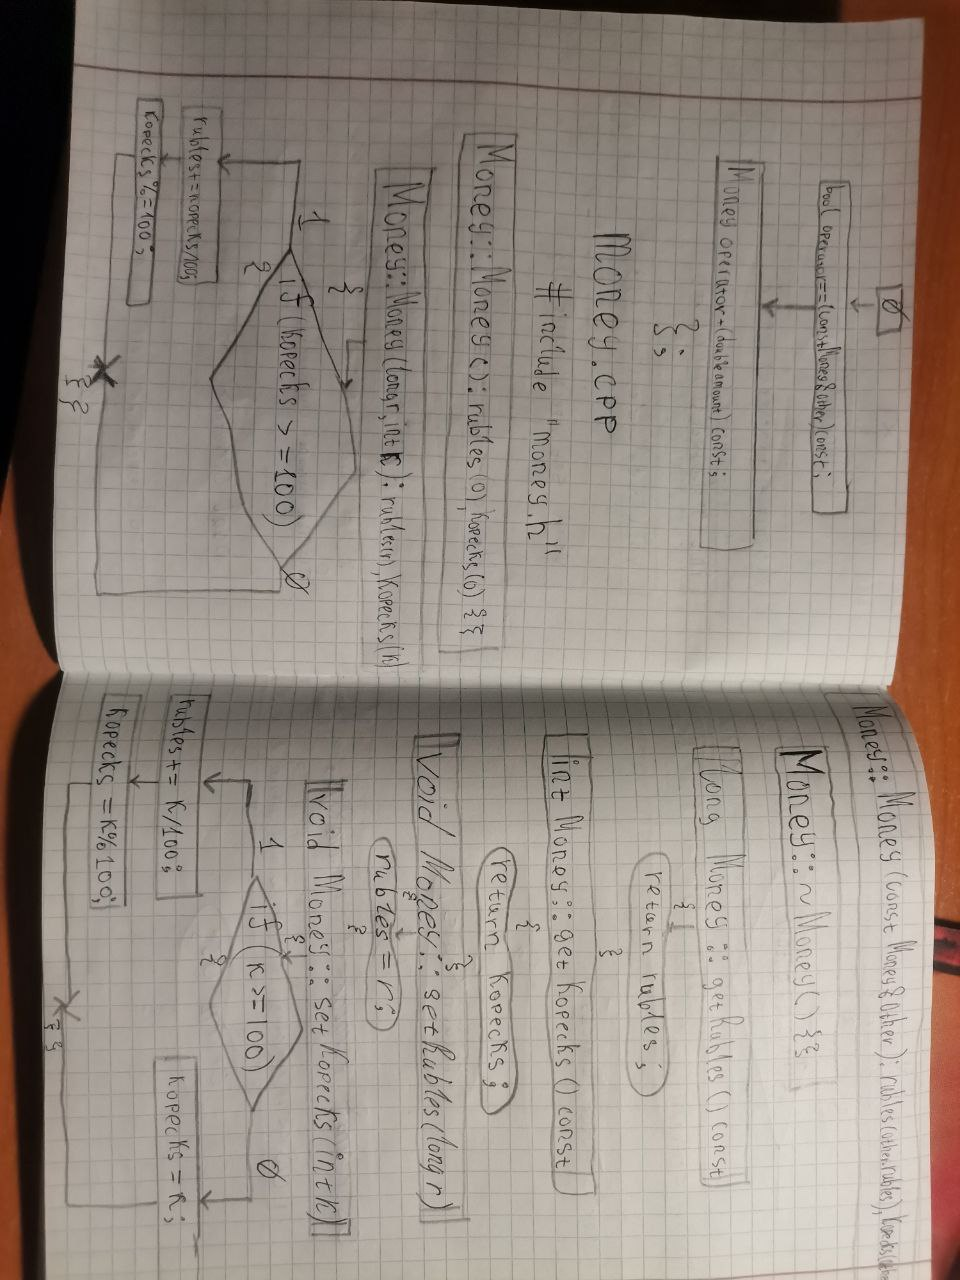 0
bool operator==(const Money&other)const;
Money operator-(double amount) const;
};
money.cpp
#include "money.h"
Money::Money():rubles(0),kopecks(0){}
Money::Money(long r, int k):rubles(r),kopecks(k)
{
if(kopecks >=100)
{
1
0
rubles+=kopecks/100;
kopecks%=100;
}}
Money::Money(const Money&other):rubles(other.rubles),kopecks(
Money::~Money(){}
long Money::getRubles()const
{
return rubles;
}
int Money::getKopecks()const
{
return kopecks;
}
void Money::setRubles(long r)
{
rubles=r;
}
void Money::setKopecks(int k)
{
if(k>=100)
{
1
0
rubles+=k/100;
kopecks=k%100;
kopecks=k;
}}